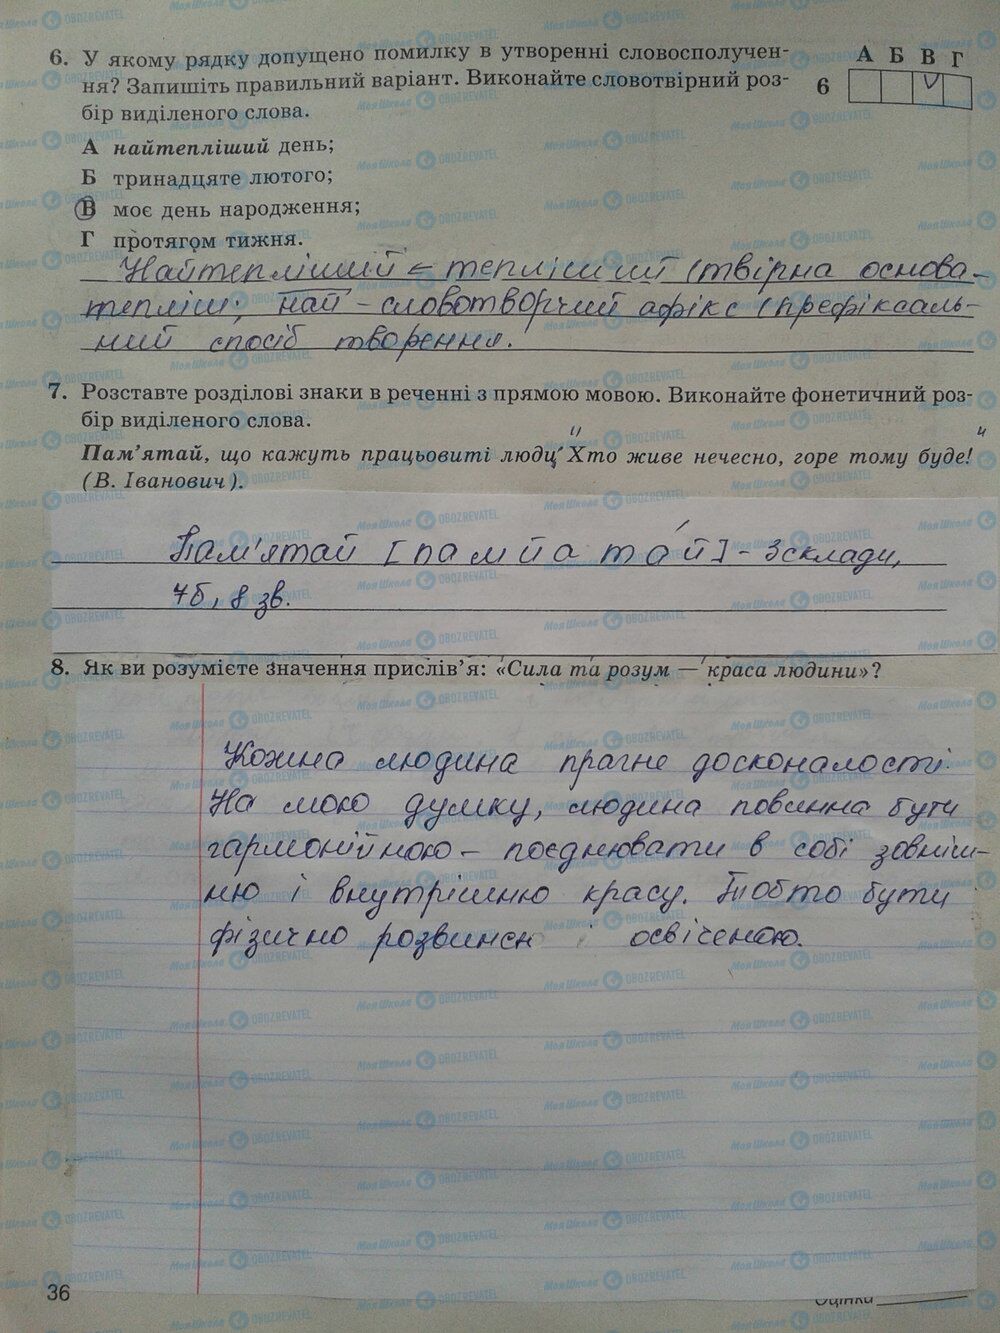 6. У якому рядку допущено помилку в утворенні словосполучен-
ня? Запишіть правильний варіант. Виконайте словотвірний роз-
бір виділеного слова.
А Б В Г
6
А найтепліший день;
Б тринадцяте лютого;
В моє день народження;
Г протягом тижня.
Найтепліший ← тепліший (твірна основа-
тепліш; най - словотворчий афікс (префіксаль-
ний спосіб творення.
7. Розставте розділові знаки в реченні з прямою мовою. Виконайте фонетичний роз-
бір виділеного слова.
Пам’ятай, що кажуть працьовиті люди: "Хто живе нечесно, горе тому буде!"
(В. Іванович).
Пам'ятай [памйатáй] - 3 склади,
7б, 8 зв.
8. Як ви розумієте значення прислів’я: «Сила та розум — краса людини»?
Кожна людина прагне досконалості.
На мою думку, людина повинна бути
гармонійною - поєднювати в собі зовніш-
ню і внутрішню красу. Тобто бути
фізично розвинен і освіченою.
36
Оцінка